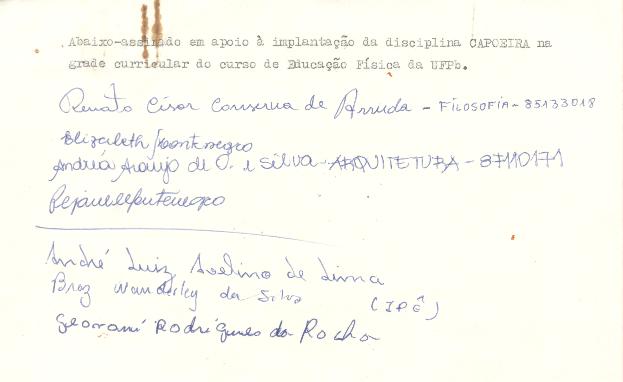 Abaixo-assinado em apoio à implantação da disciplina CAPOEIRA na
grade curricular do curso de Educação Física da UFPb.
Renato César Conserva de Arruda - FILOSOFIA - 85133018
Elizabeth Montenegro
Andréa Araújo de O. e Silva - ARQUITETURA - 87110171
Rejane Montenegro
André Luiz Avelino de Lima
Braz Wanderley da Silva (IPÊ)
Geovani Rodrigues da Rocha